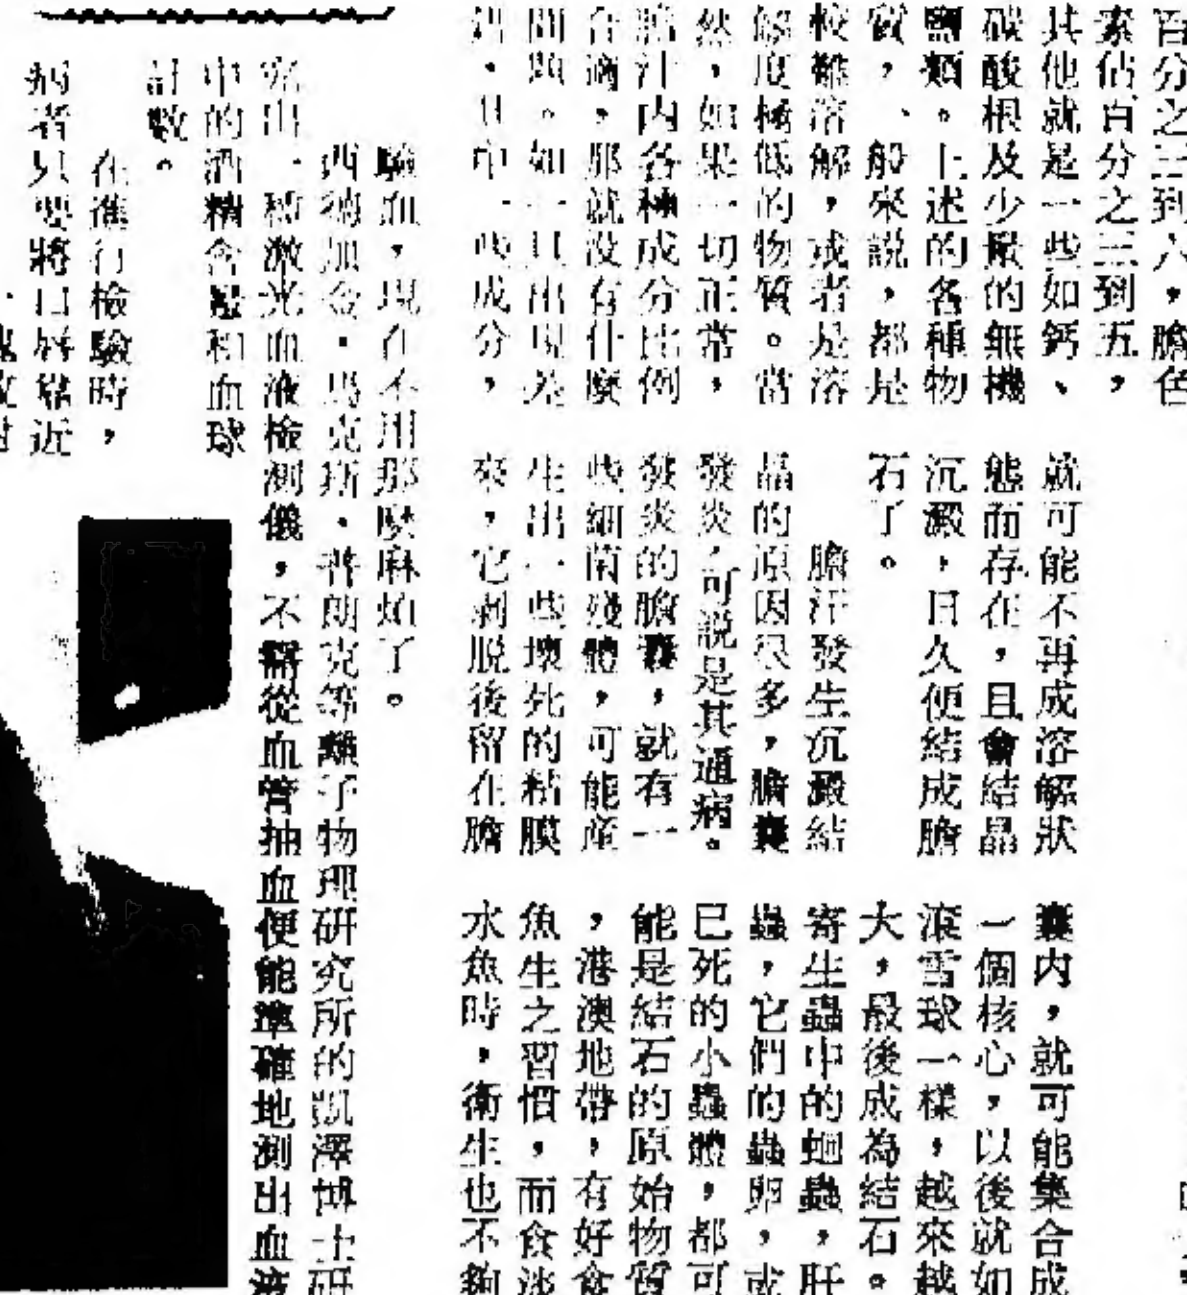 百分之三到六，膽色
素佔百分之三到五，
其他就是一些如鈣、
碳酸根及少量的無機
鹽類。上述的各種物
質，一般來説，都是
較難溶解，或者是溶
解度極低的物質。當
然，如果一切正常，
膽汁内各種成分比例
合適，那就没有什麼
問題。如一旦出現差
錯，其中一些成分，
就可能不再成溶解狀
態而存在，且會結晶
沉澱，日久便結成膽
石了。
膽汗發生沉澱結
晶的原因很多，膽囊
發炎可説是其通病。
發炎的膽囊，就有一
些細菌殘體，可能產
生出一些壞死的粘膜
來，它剥脱後留在膽
囊内，就可能集合成
一個核心，以後就如
滾雪球一樣，越來越
大，最後成為結石。
寄生蟲中的蛔蟲，肝
蟲，它們的蟲卵，或
已死的小蟲體，都可
能是結石的原始物質
，港澳地帶，有好食
魚生之習慣，而食淡
水魚時，衛生也不夠
驗血，現在不用那麼麻煩了。
西德加金·馬克斯·普朗克等離子物理研究所的凱澤博士研
究出一種激光血液檢測儀，不需從血管抽血便能準確地測出血液
中的酒精含量和血球
計數。
在進行檢驗時，
病者只要將口唇靠近